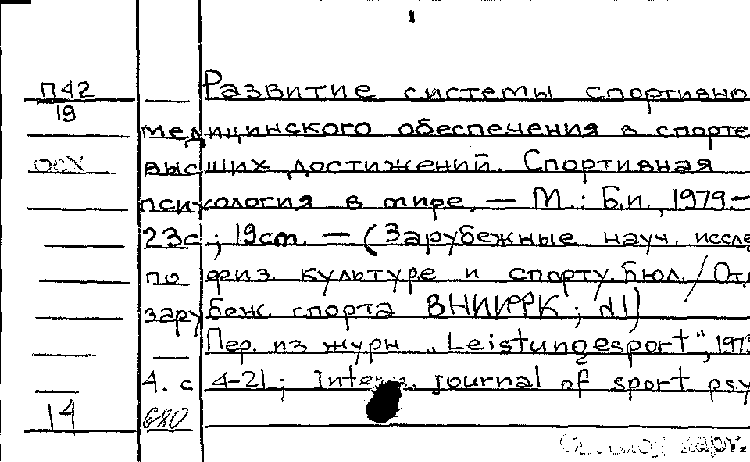 П42 Развитие системы спортивно-
19 медицинского обеспечения в спорте
высших достижений. Спортивная
психология в мире. — М.: Б.и., 1979.-
23с.; 19см. — (Зарубежные науч. иссле
по физ. культуре и спорту. Бюл./Отд
зарубеж. спорта ВНИИФК; N1)
Пер. из журн. „Leistungesport", 197
4. с 4-21; Intern. journal of sport psy
14 680
карт.